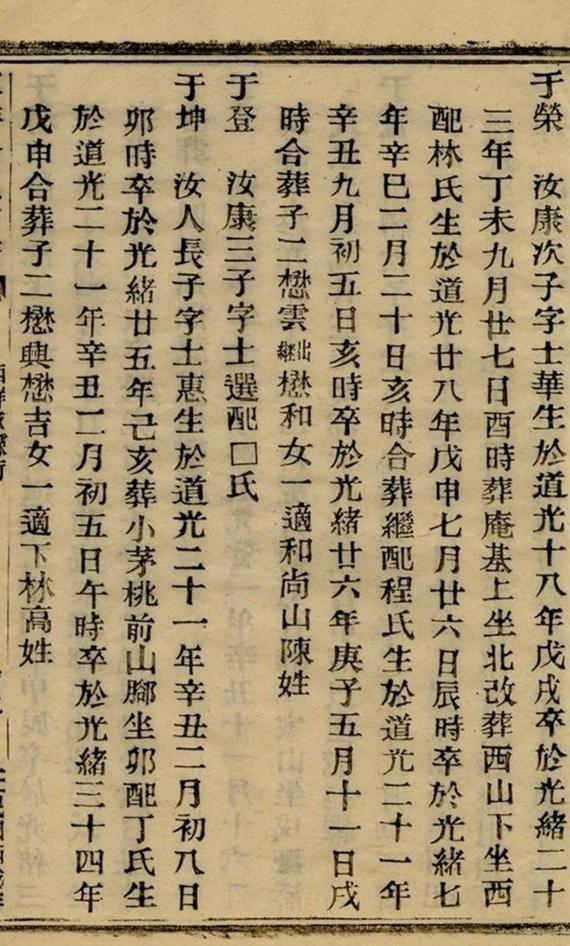 于榮 汝康次子字士華生於道光十八年戊戌卒於光緒二十
三年丁未九月廿七日酉時葬庵基上坐北改葬西山下坐酉
配林氏生於道光廿八年戊申七月廿六日辰時卒於光緒七
年辛巳二月二十日亥時合葬繼配程氏生於道光二十一年
辛丑九月初五日亥時卒於光緒廿六年庚子五月十一日戌
時合葬子二懋雲出繼懋和女一適和尚山陳姓
于登 汝康三子字士選配□氏
于坤 汝人長子字士惠生於道光二十一年辛丑二月初八日
卯時卒於光緒廿五年己亥葬小茅桃前山腳坐卯配丁氏生
於道光二十一年辛丑二月初五日午時卒於光緒三十四年
戊申合葬子二懋興懋吉女一適下林高姓